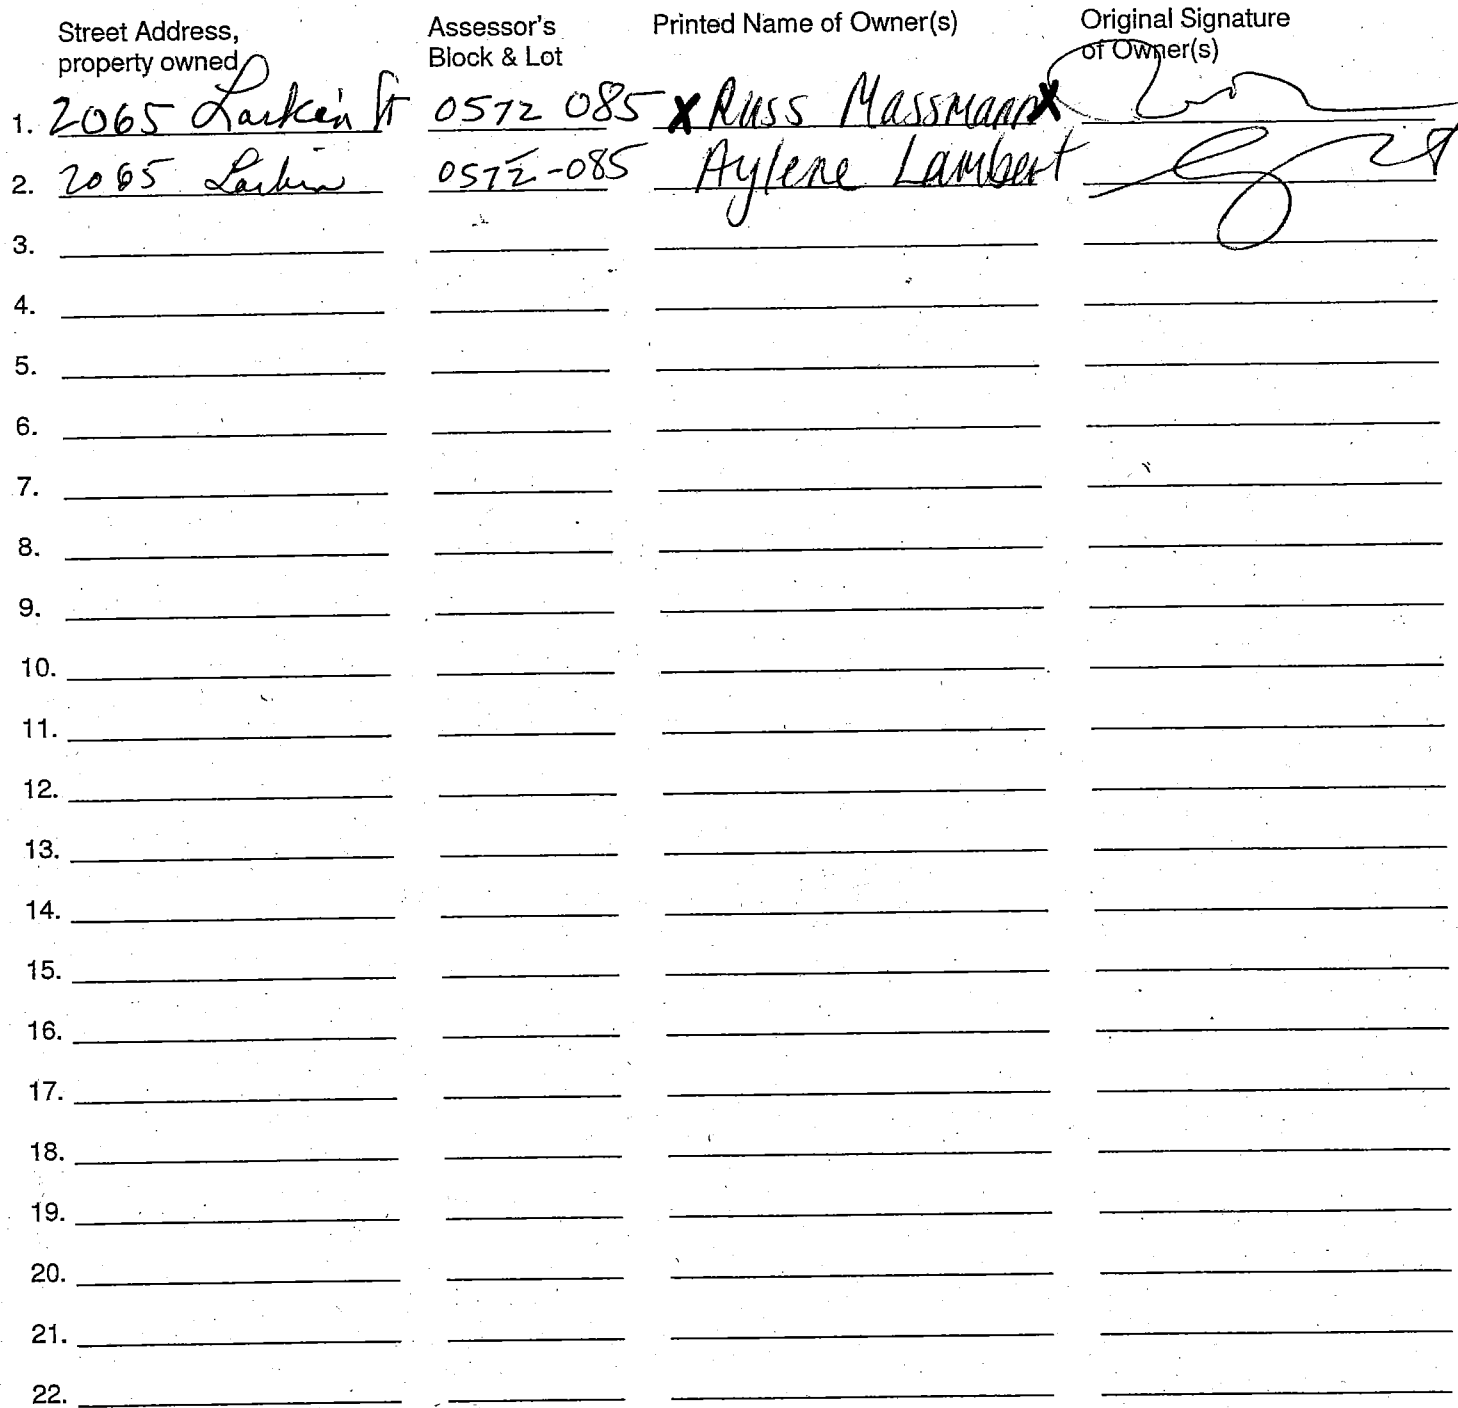 Street Address, property owned Assessor's Block & Lot Printed Name of Owner(s) Original Signature of Owner(s)
1. 2065 Larkin St 0572 085 X Russ Massmann X
2. 2065 Larkin 0572-085 Aylene Lambert
3.
4.
5.
6.
7.
8.
9.
10.
11.
12.
13.
14.
15.
16.
17.
18.
19.
20.
21.
22.